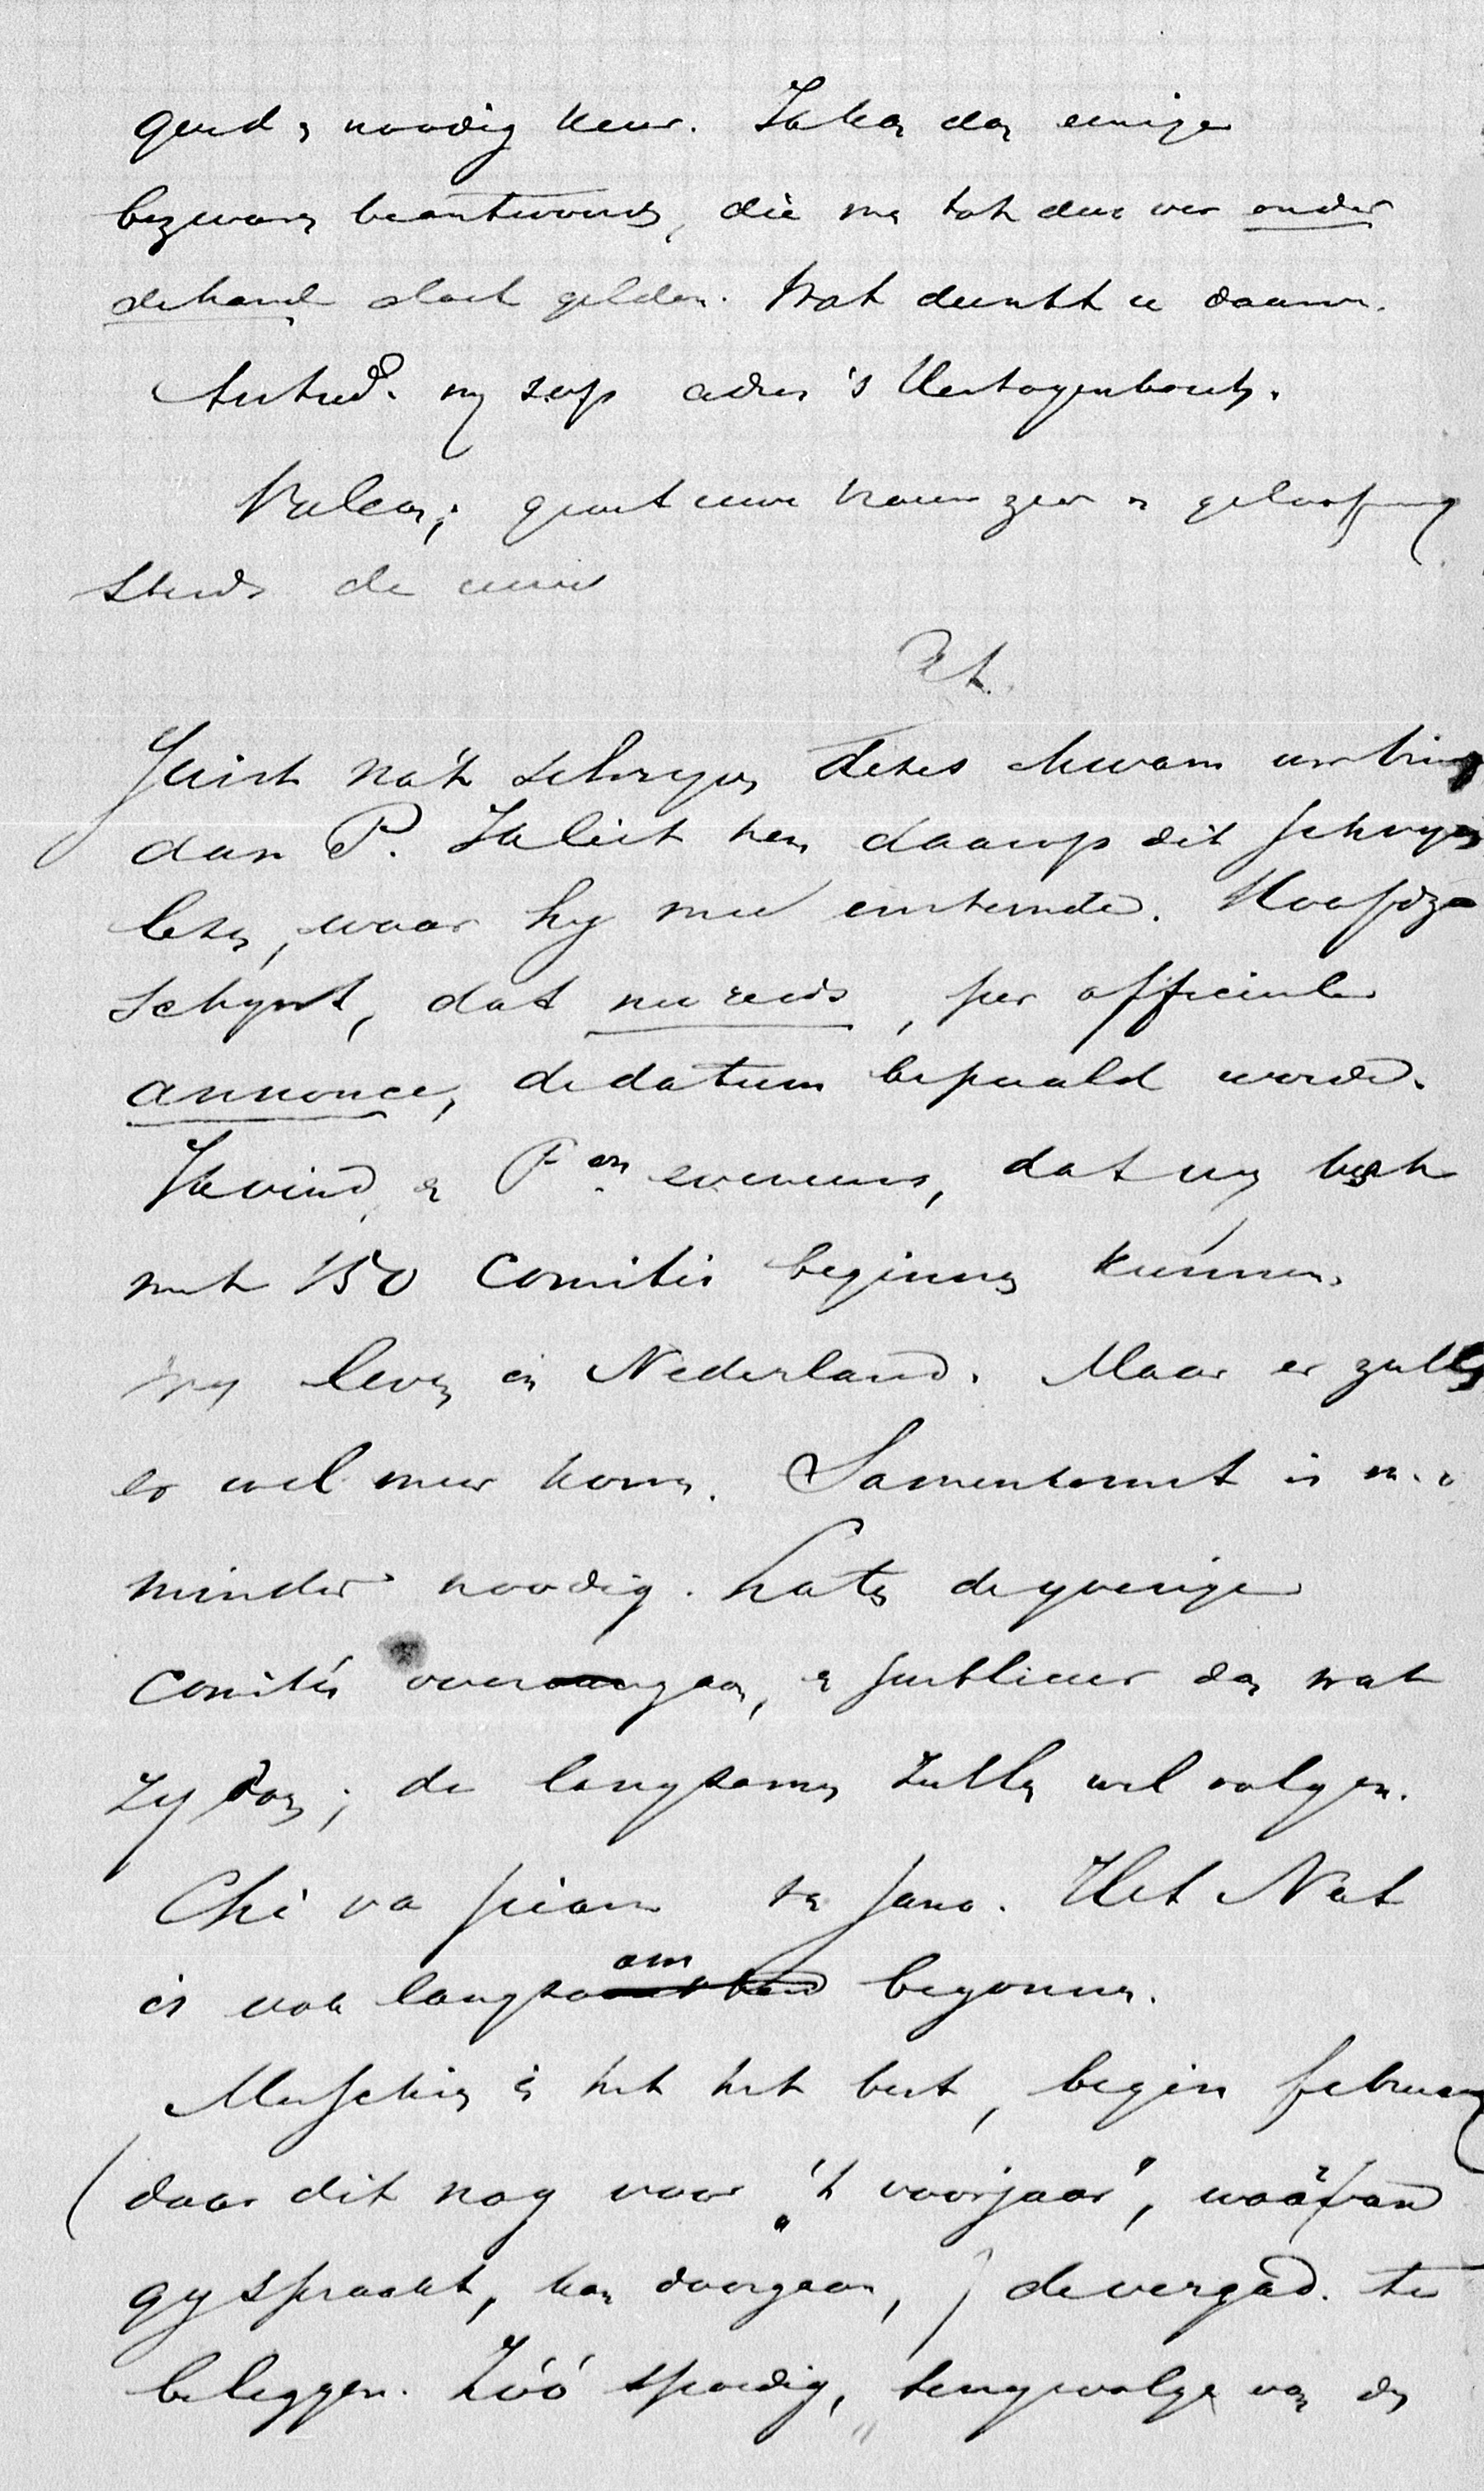 goed & noodig keur. Ik kan dan eenige
bezwaren beantwoorden, die me tot dus ver onder
de hand slach gelden. Wat dunkt u daarvan.
Antwd. mij svp adres 's Hertogenbosch.
Valeas; groet uwe vrouw zeer & geloof mij
steeds de uwe
Juist na 't schrijven dezes kwam uw brief
aan P. Ik liet hem daarop dit schrijven
lezen, waar hij mee instemde. Hoofdz
schijnt, dat nu reeds, per officieele
annonce, de datum bepaald worde.
Ik vind, & P. eveneens, dat wij best
met 150 Comités beginnen kunnen.
Wij leven in Nederland. Maar er zullen
er wel meer komen. Samenkomst is m. i
minder noodig. Laten de ijverige
Comités voorgaan, & publiceer dan wat
zij doen; de langzamen zullen wel volgen.
Chi va piano va sano. Het Nut
is ook langzaam begonnen.
Misschien is het het best, begin februari
(daar dit nog voor "'t voorjaar", waarvan
gij spraakt, kan doorgaan,) de vergad. te
beleggen. Zóó spoedig, tengevolge van den